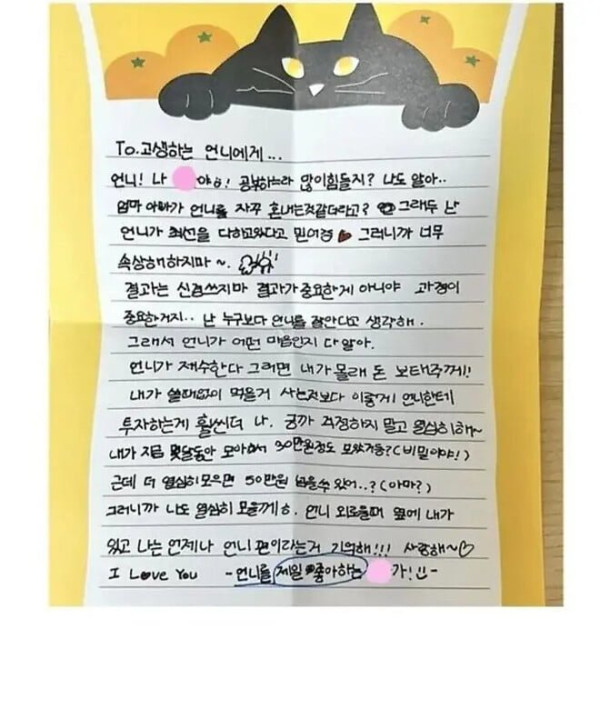 To.고생하는 언니에게...
언니! 나 야ㅎ! 공부하느라 많이힘들지? 나도 알아..
엄마 아빠가 언니를 자꾸 혼내는것같더라고? 그래두 난
언니가 최선을 다하고있다고 믿어경 그러니까 너무
속상해하지마~.
결과는 신경쓰지마 결과가 중요한게 아니야 과정이
중요한거지.. 난 누구보다 언니를 잘안다고 생각해.
그래서 언니가 어떤 마음인지 다 알아.
언니가 재수한다 그러면 내가 몰래 돈 보태주께!!
내가 쓸때없이 먹을거 사는것보다 이렇게 언니한테
투자하는게 훨씬더 나. 긍까 걱정하지 말고 열심히해~
내가 지금 몇달동안 모아놔서 30만원정도 모았거등?(비밀이야!)
근데 더 열심히모으면 50만원 넘을수 있어..?(아마?)
그러니까 나도 열심히 모을께ㅎ. 언니 외로울때 옆에 내가
있고 나는 언제나 언니 편이라는거 기억해!!! 사랑해~♡
I Love You -언니를 제일 좋아하는 가!!-